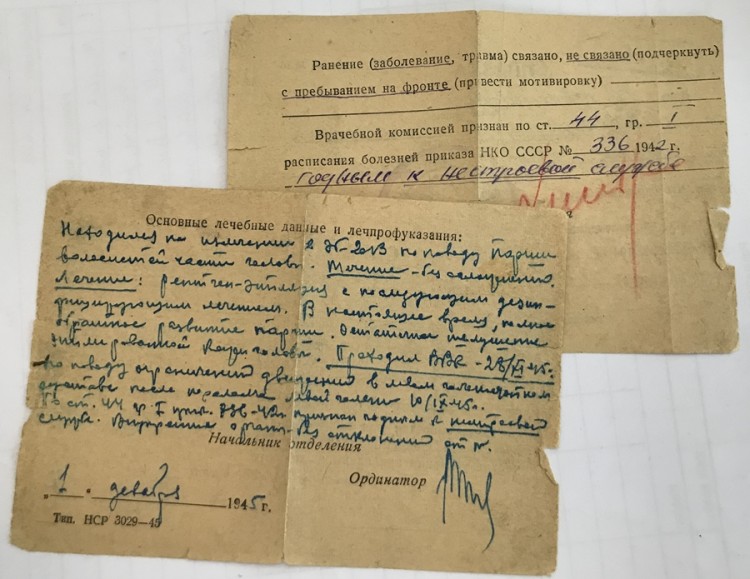 Ранение (заболевание, травма) связано, не связано (подчеркнуть)
с пребыванием на фронте (привести мотивировку)
Врачебной комиссией признан по ст. 44, гр. I
расписания болезней приказа НКО СССР № 336 1942 г.
годным к нестроевой службе
Основные лечебные данные и лечпрофуказания:
Находился на излечении в по поводу парши
волосистой части головы. Течение - без осложнений.
Лечение: рентген-эпиляция с последующим дезин-
фицирующим лечением. В настоящее время, полное
обратное развитие парши. Остаточное
кожи головы. Проходил ВВК - 28/XI-45г.
по поводу ограничения движений в левом голеностопном
суставе после перелома левой голени 10/IX 45г.
По ст. 44 гр. I пр. 336-42г признан годным к нестроевой
службе. Внутренние органы - без отклонений от N.
Начальник отделения
Ординатор
„1" декабря 1945 г.
Тип. НСР 3029—45